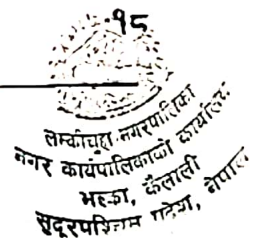 १८
लम्कीचुहा नगरपालिका
नगर कार्यपालिकाको कार्यालय
कैलाली
सुदूरपश्चिम प्रदेश, नेपाल